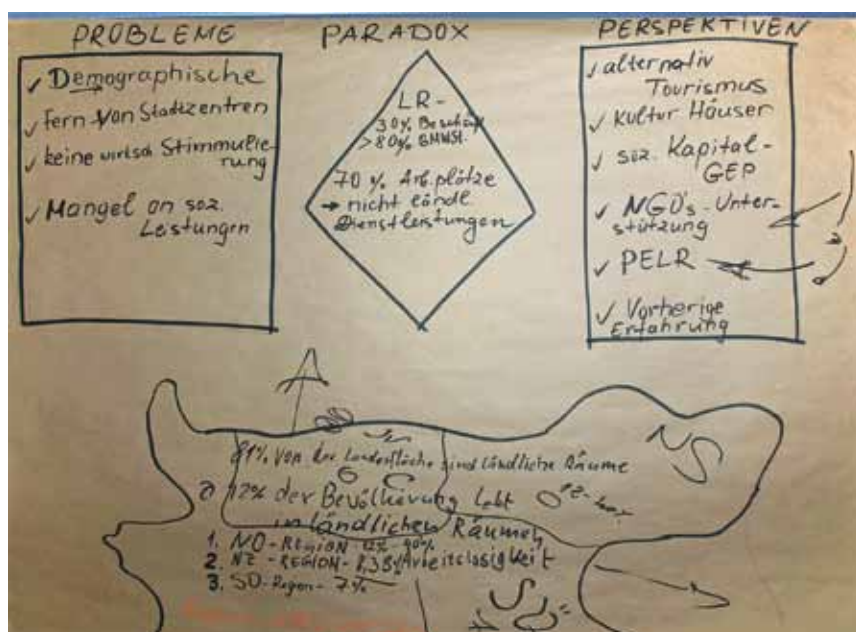 PROBLEME
✓ Demographische
✓ fern von Stadtzentren
✓ keine wirtsch Stimmulie-
rung
✓ Mangel an soz.
Leistungen
PARADOX
LR-
30% Besch
>80%
70 % Arb.plätze
→ nicht ländl
Dienstleistungen
PERSPEKTIVEN
✓ alternativ
Tourismus
✓ Kultur Häuser
✓ soz. Kapital-
GEP
✓ NGO's-Unter-
stützung
✓ PELR
✓ Vorherige
Erfahrung
81% von der Landesfläche sind ländliche Räume
12% der Bevölkerung lebt
in ländlichen Räumen
1. NO-REGION 12% 40%
2. NZ-REGION- 8,38% Arbeitslosigkeit
3. SO-Region- 7%